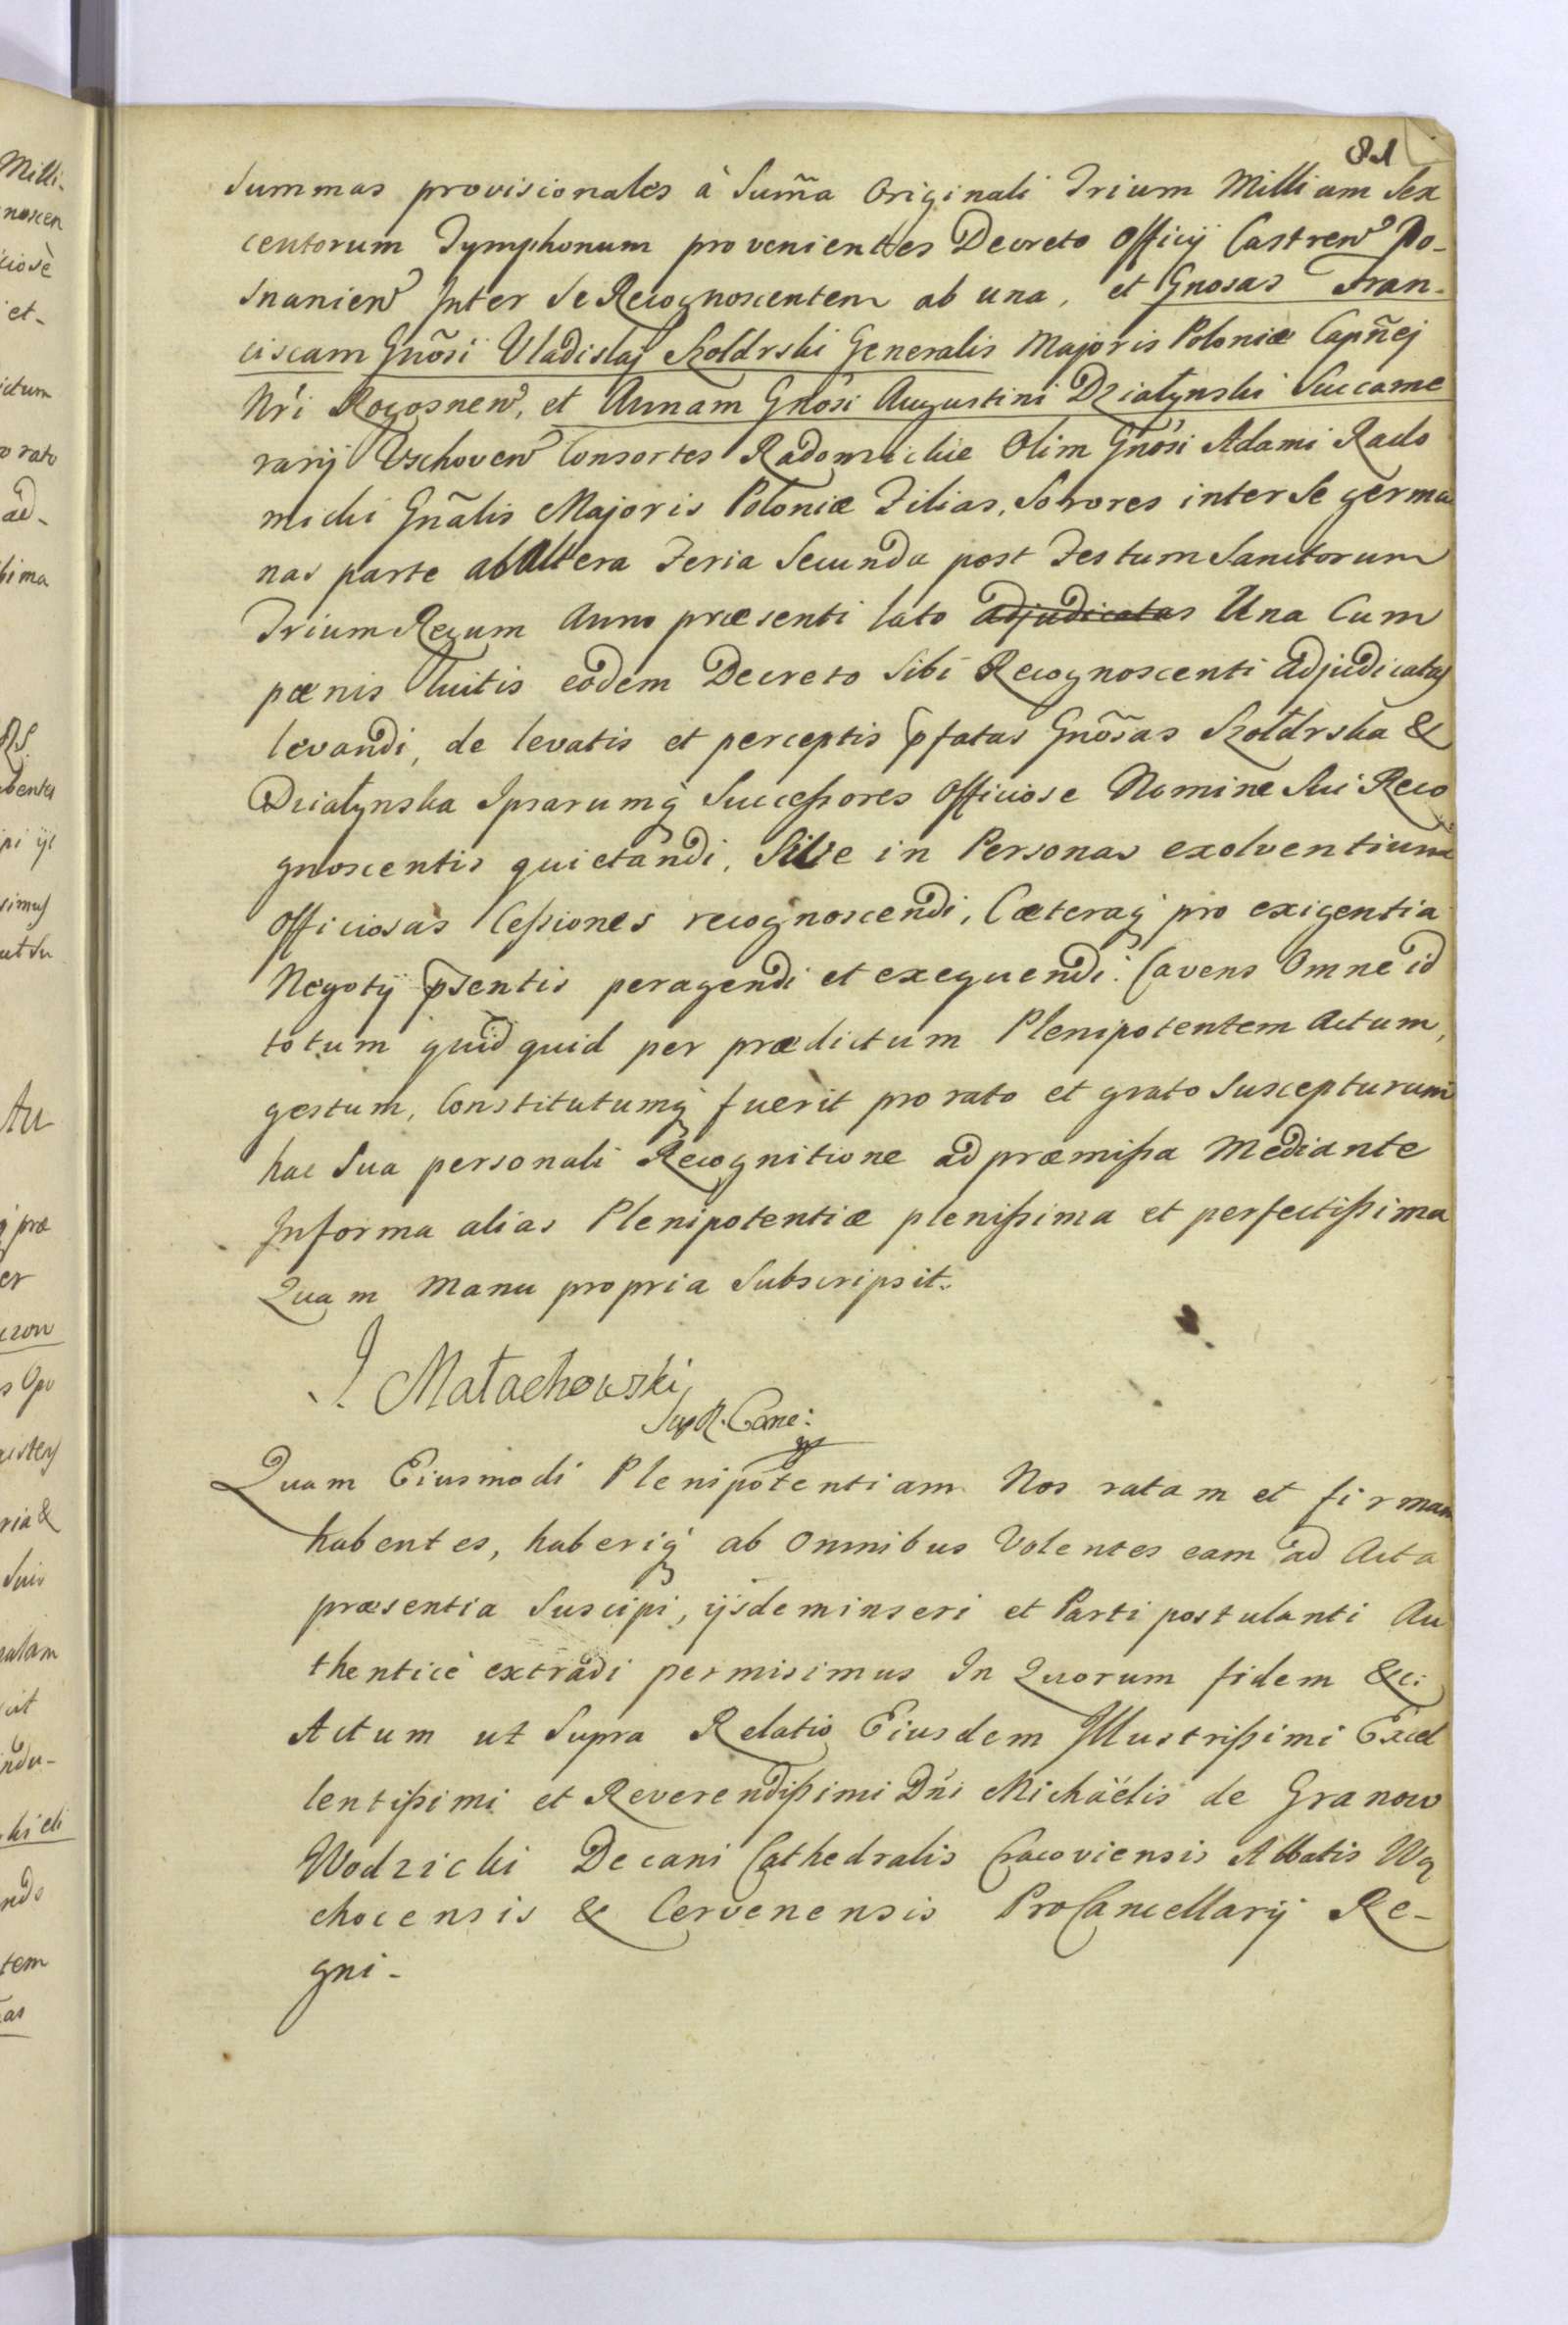 81
Summas provisionales à Sum̃a Originali Trium Millium Sex
centorum Tymphonum provenientes Decreto Officij Castren̄ Po-
snanien̄ Inter Se Recognoscentem ab una, et Gnosas Fran-
ciscam Gnõsi Vladislaj Szoldrski Generalis Majoris Poloniæ Capñej
Nr̃i Rogosnen̄, et Annam Gnõsi Augustini Działynski Succame
rarij Vschoven̄ Consortes Radomickie Olim Gnõsi Adami Rado
micki Gnãlis Majoris Poloniæ Filias, Sorores inter Se germa
nas parte ab Altera Feria Secunda post Festum Sanctorum
Trium Regum Anno præsenti lato adjudicatas Una Cum
pœnis luitis eodem Decreto Sibi Recognoscenti Adjudicatas
levandi, de levatis et perceptis p̃fatas Gnõsas Szołdrska &
Działynska Ipsarumq́ Successores Officiose Nomine Sui Reco
gnoscentis quietandi, Sive in Personas exolventium
Officiosas Cessiones recognoscendi, Cæteraq́ pro exigentia
Negotij p̃sentis peragendi et exequendi. Cavens Omne id
totum quidquid per prædictum Plenipotentem Actum,
gestum, Constitutumq́ fuerit pro rato et grato Suscepturum
hac Sua personali Recognitione ad præmissa Mediante
In forma alias Plenipotentiæ plenissima et perfectissima
Quam Manu propria Subscripsit.
J. Małachowski
Sup R. Canc:
Quam Eiusmodi Plenipotentiam Nos ratam et firmam
habentes, haberiq́ ab Omnibus Volentes eam ad Acta
præsentia Suscipi, ijsdem inseri et Parti postulanti Au
thenticè extradi permisimus In Quorum fidem &c:
Actum ut Supra Relatio Eiusdem Illustrissimi Excel
lentissimi et Reverendissimi Dñi Michäelis de Granow
Wodzicki Decani Cathedralis Cracoviensis Abbatis Wą
chocensis & Cervenensis ProCancellarij Re-
gni-